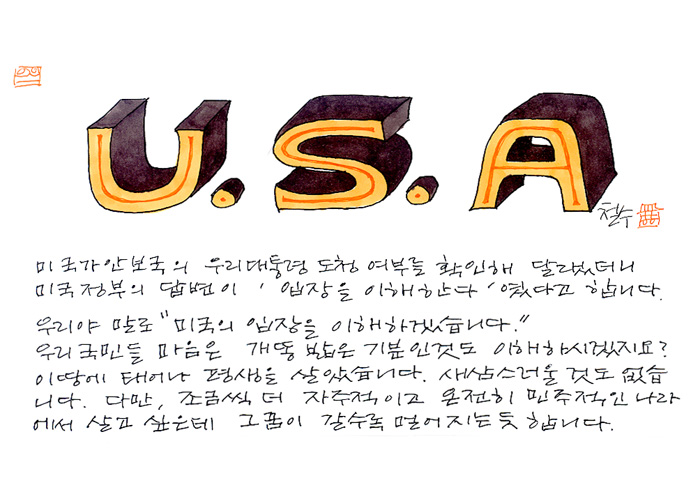 U.S.A
철수
미국가안보국의 우리대통령 도청 여부를 확인해 달랬더니
미국정부의 답변이 '입장을 이해한다'였다고 합니다.
우리야 말로 "미국의 입장을 이해하겠습니다."
우리국민들 마음은 개똥 밟은 기분인것도 이해하시겠지요?
이땅에 태어나 평생을 살았습니다. 새삼스러울 것도 없습
니다. 다만, 조금씩 더 자주적이고 온전히 민주적인 나라
에서 살고 싶은데 그 꿈이 갈수록 멀어지는듯 합니다.